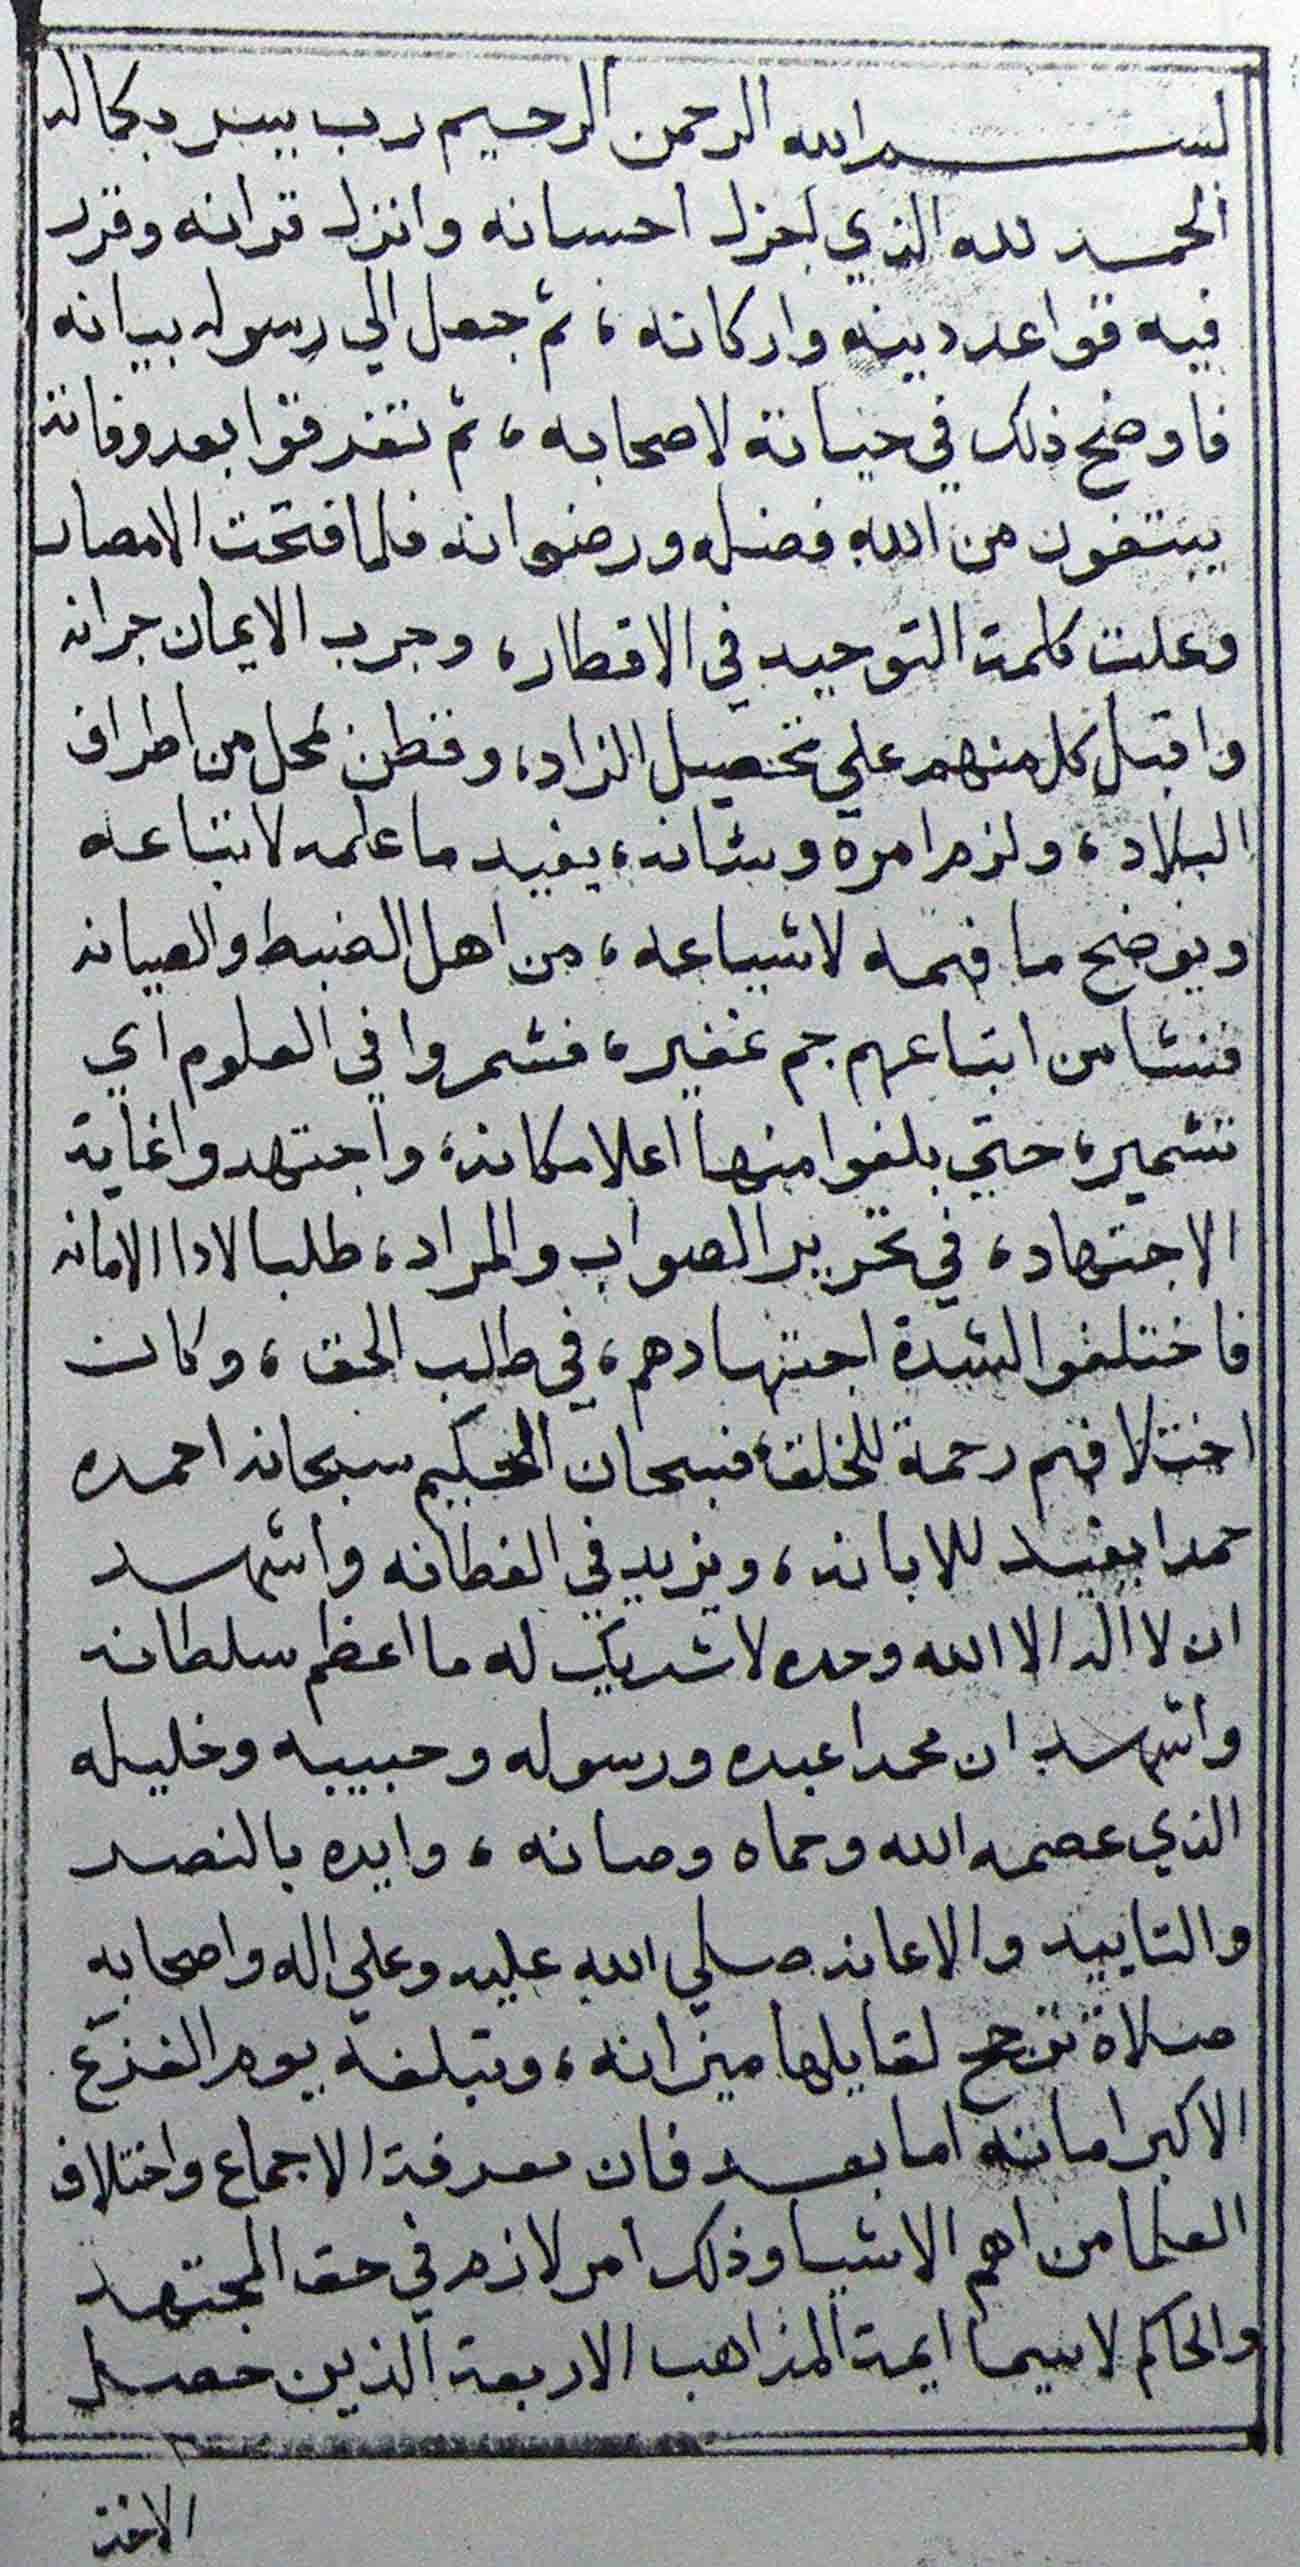 بسم الله الرحمن الرحيم رب يسر بكماله
الحمد لله الذي اجزل احسانه وانزل قرانه وقرر
فيه قواعد دينه واركانه ، ثم جعل الي رسوله بيانه
فاوضح ذلك في حياته لاصحابه ، ثم تفرقوا بعد وفاته
يبتغون من الله فضله ورضوانه فلما فتحت الامصار
وعلت كلمة التوحيد في الاقطار ، وجرب الايمان جرانه
واقبل كل منهم علي تحصيل الزاد ، وقطن بمحل من اطراف
البلاد ، ولزم امره وشانه ، يفيد ما علمه لاتباعه
ويوضح ما فهمه لاشياعه ، من اهل الضبط والصيانه
فنشا من اتباعهم جم غفير ، فشمروا في العلوم اي
تشمير ، حتي بلغوا منها اعلا مكانه ، واجتهدوا غاية
الاجتهاد ، في تحرير الصواب والمراد ، طلبا لادا الامانه
فاختلفوا لشدة اجتهادهم ، في طلب الحق ، وكان
اختلافهم رحمة للخلق ، فسبحان الحكيم سبحانه احمده
حمدا يفيد للابانه ، ويزيد في الفطانه واشهد
ان لا اله الا الله وحده لا شريك له ما اعظم سلطانه
واشهد ان محمدا عبده ورسوله وحبيبه وخليله
الذي عصمه الله وحماه وصانه ، وايده بالنصر
والتاييد والاعانه صلي الله عليه وعلي اله واصحابه
صلاة ترجح لقايلها ميزانه ، وتبلغه يوم الفزع
الاكبر امانته اما بعد فان معرفة الاجماع واختلاف
العلما من اهم الاشيا وذلك امر لازم في حق المجتهد
والحاكم لا سيما ايمة المذاهب الاربعة الذين حصل
الاخذ